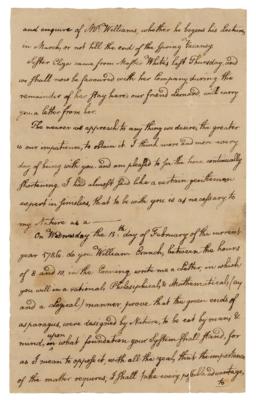 and enquire of Mr. Williams, whether he begins his Lectures
in March, or not till the end of the Spring Vacancy
Sister Eliza came from Master White's last Thursday, and
we shall now be favoured with her Company during the
remainder of her stay here; our friend Leonard will carry
you a letter from her.
The nearer we approach to any thing we desire, the greater
is our impatience, to obtain it. I think more and more every
day of being with you and am pleased to see the time continually
shortening. I had almost said like a certain gentleman
expert in similies, that to be with you is as necessary to
my Nature as a
On Wednesday the 15th day of February of the current
year 1786. do you William Cranch, between the hours
of 8 and 10, in the Evening, write me a Letter, in which
you will in a rational, Philosophical & Mathematical (ay
and a Logical) manner, prove that the green ends of
asparagus, were designed by Nature, to be eat by man: &
mind, upon what foundation your System shall stand, for
as I mean to oppose it, with all the zeal, that the importance
of the matter requires, I shall take every possible advantage,
to